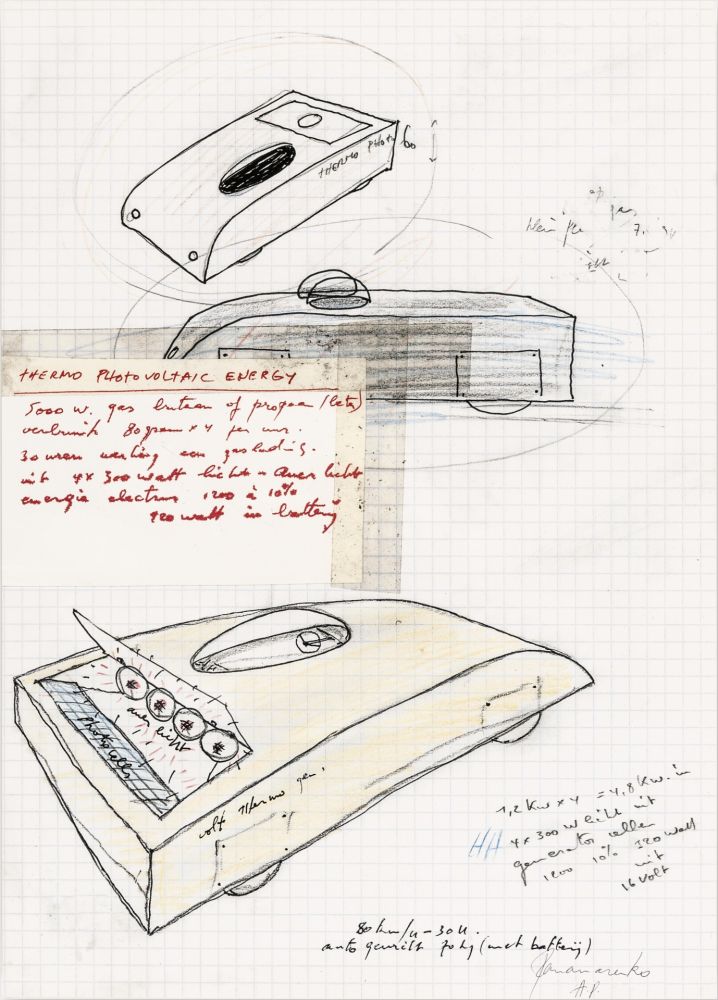 THERMO PHOTO
60
THERMO PHOTOVOLTAIC ENERGY
5000 W. gas butaan of propaan
verbruik 80 gram x 4 per uur.
30 uren werking een gaslading.
uit 4 x 300 watt licht = Auer licht
energie electrum 1200 à 10%
120 watt in batterij
auer licht
photo cells
volt Thermo gen.
1,2 Kw x 4 = 4,8 Kw. in
4 x 300 W licht uit
generator cellen
1200 10% 120 watt
uit
16 volt
80 km/u - 30 u.
auto gewicht 70 kg (met batterij)
Panamarenko
A.P.